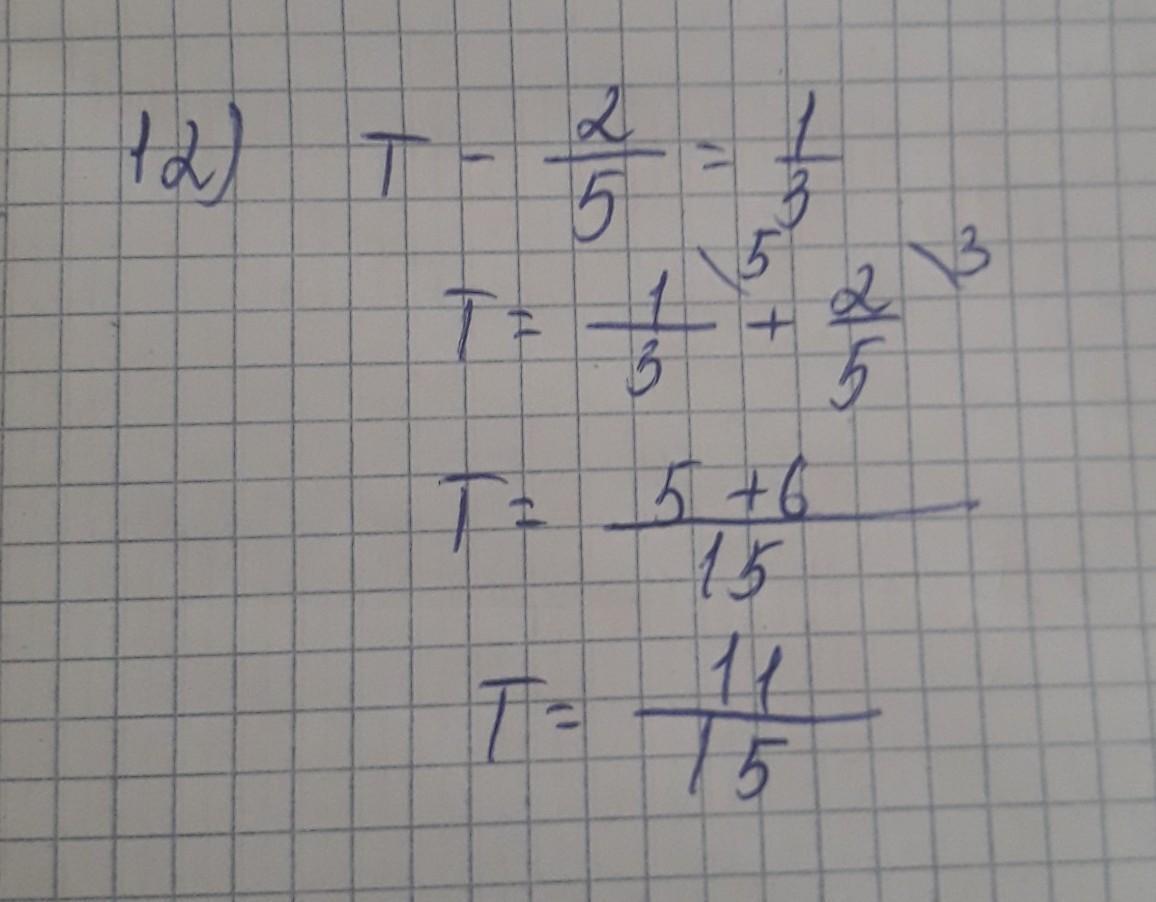 12) T - 2/5 = 1/3
T = 1/3 \5 + 2/5 \3
T = 5 + 6 / 15
T = 11/15